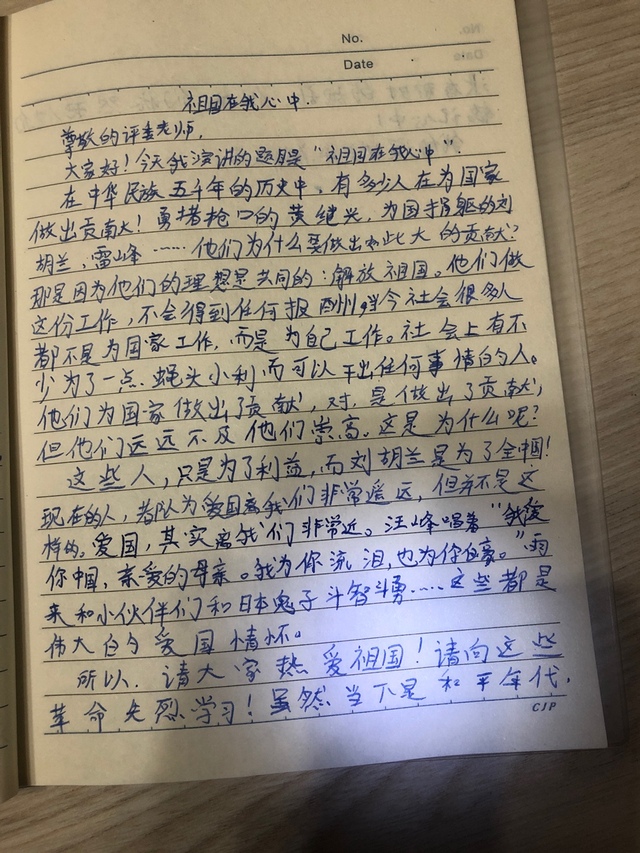 No.
Date
祖国在我心中.
尊敬的评委老师,
大家好!今天我演讲的题目是“祖国在我心中”.
在中华民族五千年的历史中,有多少人在为国家
做出贡献!勇堵抢口的黄继兴,为国捐躯的刘
胡兰,雷峰……他们为什么要做出如此大的贡献?
那是因为他们的理想是共同的:解放祖国。他们做
这份工作,不会得到任何报酬,当今社会很多人
都不是为国家工作,而是为自己工作。社会上有不
少为了一点蝇头小利而可以干出任何事情的人。
他们为国家做出了贡献,对,是做出了贡献,
但他们远远不及他们崇高。这是为什么呢?
这些人,只是为了利益,而刘胡兰是为了全中国!
现在的人,都认为爱国离我们非常遥远,但并不是这
样的。爱国,其实离我们非常近。汪峰唱着“我爱
你中国,亲爱的母亲。我为你流泪,也为你自豪。”雨
来和小伙伴们和日本鬼子斗智斗勇……这些都是
伟大的爱国情怀。
所以,请大家热爱祖国!请向这些
革命先烈学习!虽然当下是和平年代,
CJP